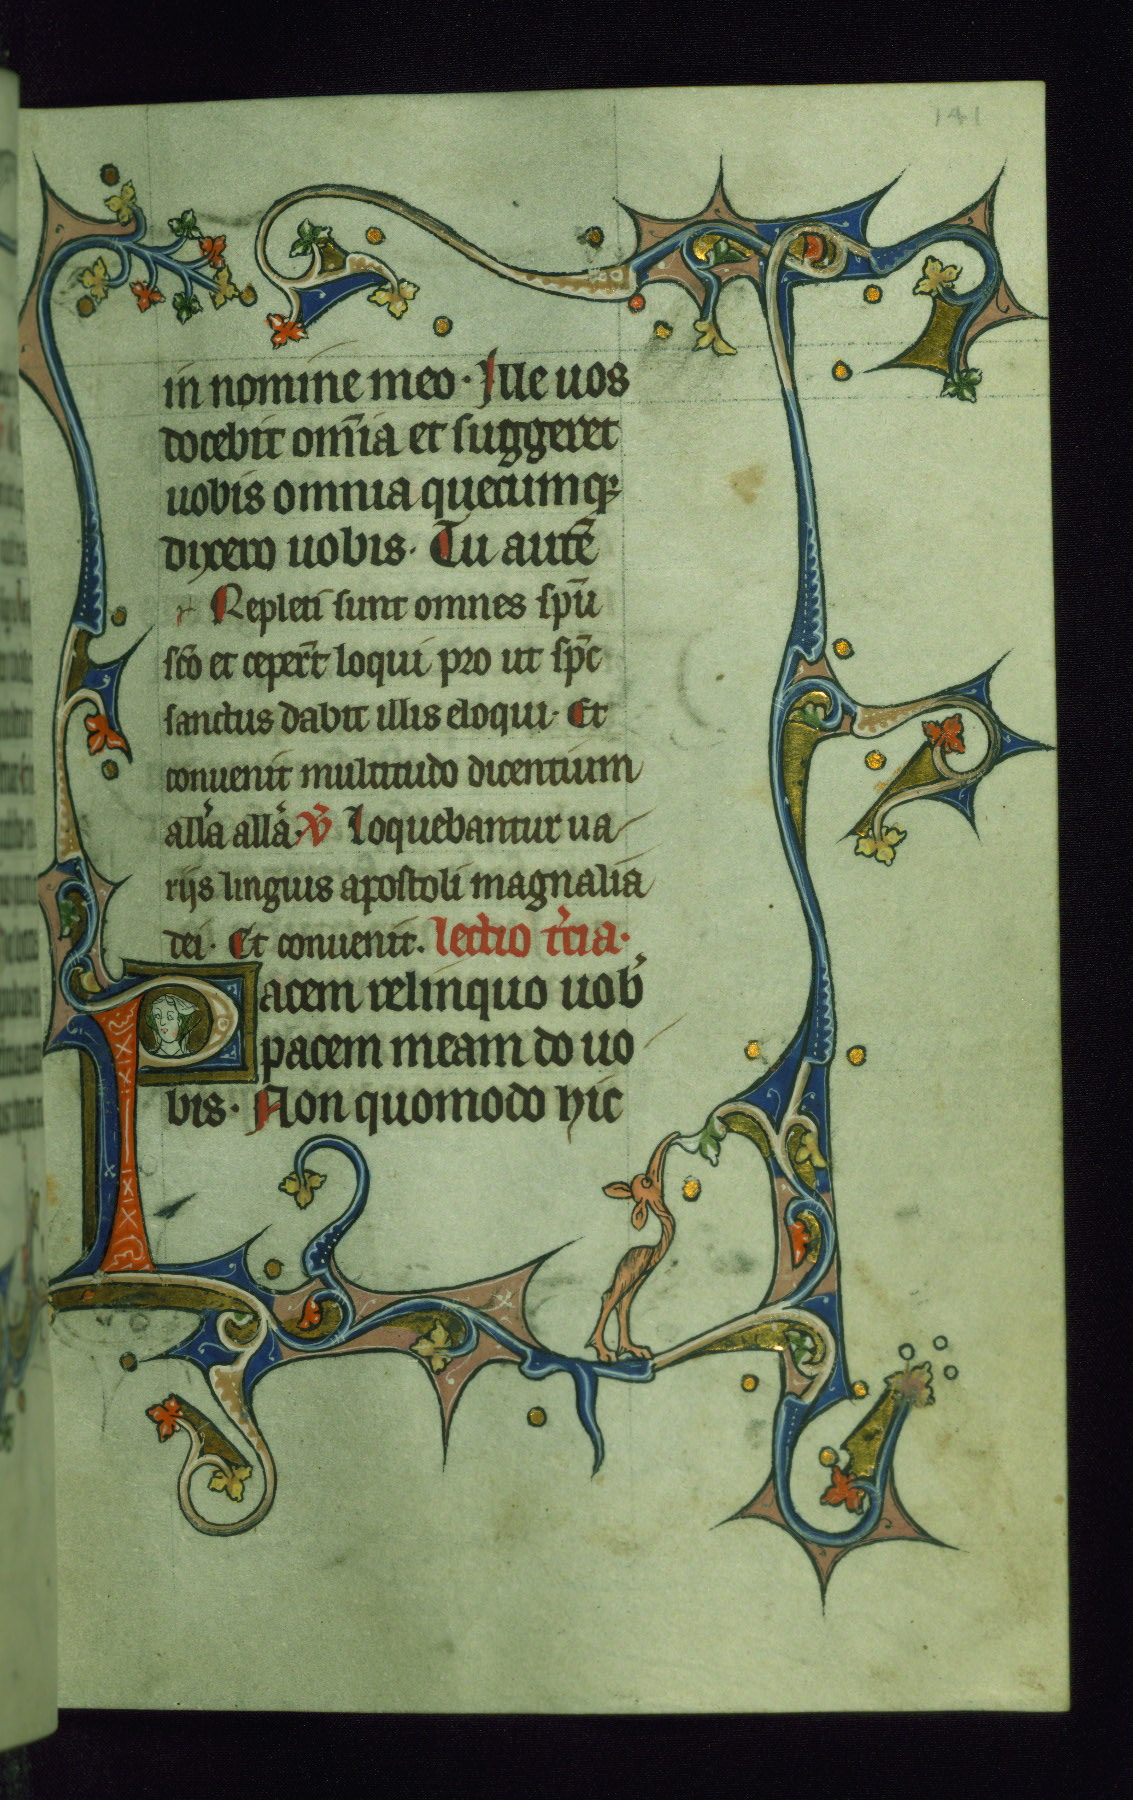 141
in nomine meo · Ille uos
docebit om̄ia et suggeret
uobis omnia quecumq;
dixero uobis · Tu autē
r Repleti sunt omnes sp̄u
sc̄o et ceper̄t loqui pro ut sp̄c
sanctus dabit illis eloqui · Et
conuenit multitudo dicentium
all'a all'a · v̄ Loquebantur ua
rijs linguis apostoli magnalia
dei · Et conuenit . lectio t'cia ·
Pacem relinquo uob'
pacem meam do uo
bis · Non quomodo hic